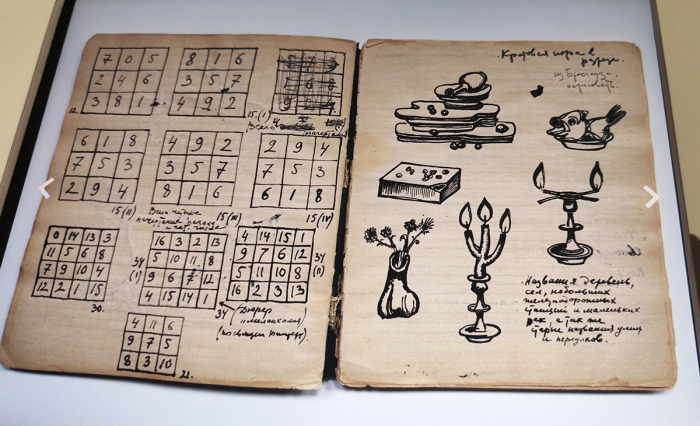 7 0 5
2 4 6
3 8 1
12.
8 1 6
3 5 7
4 9 2
15 (I)
Всего
6 1 8
7 5 3
2 9 4
15 (II)
4 9 2
3 5 7
8 1 6
15 (III)
2 9 4
7 5 3
6 1 8
15 (IV)
0 14 13 3
11 5 6 8
7 9 10 4
12 2 1 15
30.
16 3 2 13
5 10 11 8
9 6 7 12
4 15 14 1
34
(I)
34
4 14 15 1
9 7 6 12
5 11 10 8
16 2 3 13
34
(II)
Дюрер
"Меланхолия"
4 11 6
9 7 5
8 3 10
21.
Кротовая нора в
разрезе.
из
Названия деревень,
сел, небольших
железнодорожных
станций и маленьких
рек, а так же
старые названия улиц
и переулков.